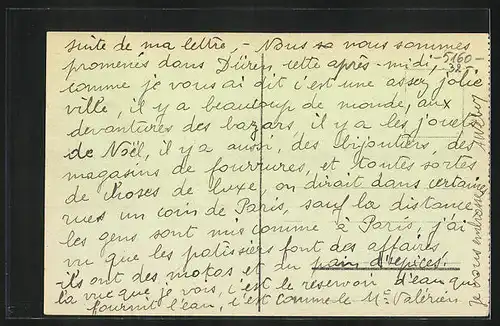 suite de ma lettre, - Nous nous sommes
promenés dans Düren, cette après-midi,
comme je vous ai dit c'est une assez jolie
ville, il y a beaucoup de monde, aux
devantures des bazars, il y a les jouets
de Noël, il y a aussi, des bijoutiers, des
magasins de fourrures, et toutes sortes
de choses de luxe, on dirait dans certaines
rues un coin de Paris, sauf la distance
les gens sont mis comme à Paris, j'ai
vu que les patissiers font des affaires
ils ont des mokas et du pain d'épices.
la vue que je vois, c'est le reservoir d'eau qui
fournit l'eau, c'est comme le Mt Valérien
Je vous embrasse
5160-
32